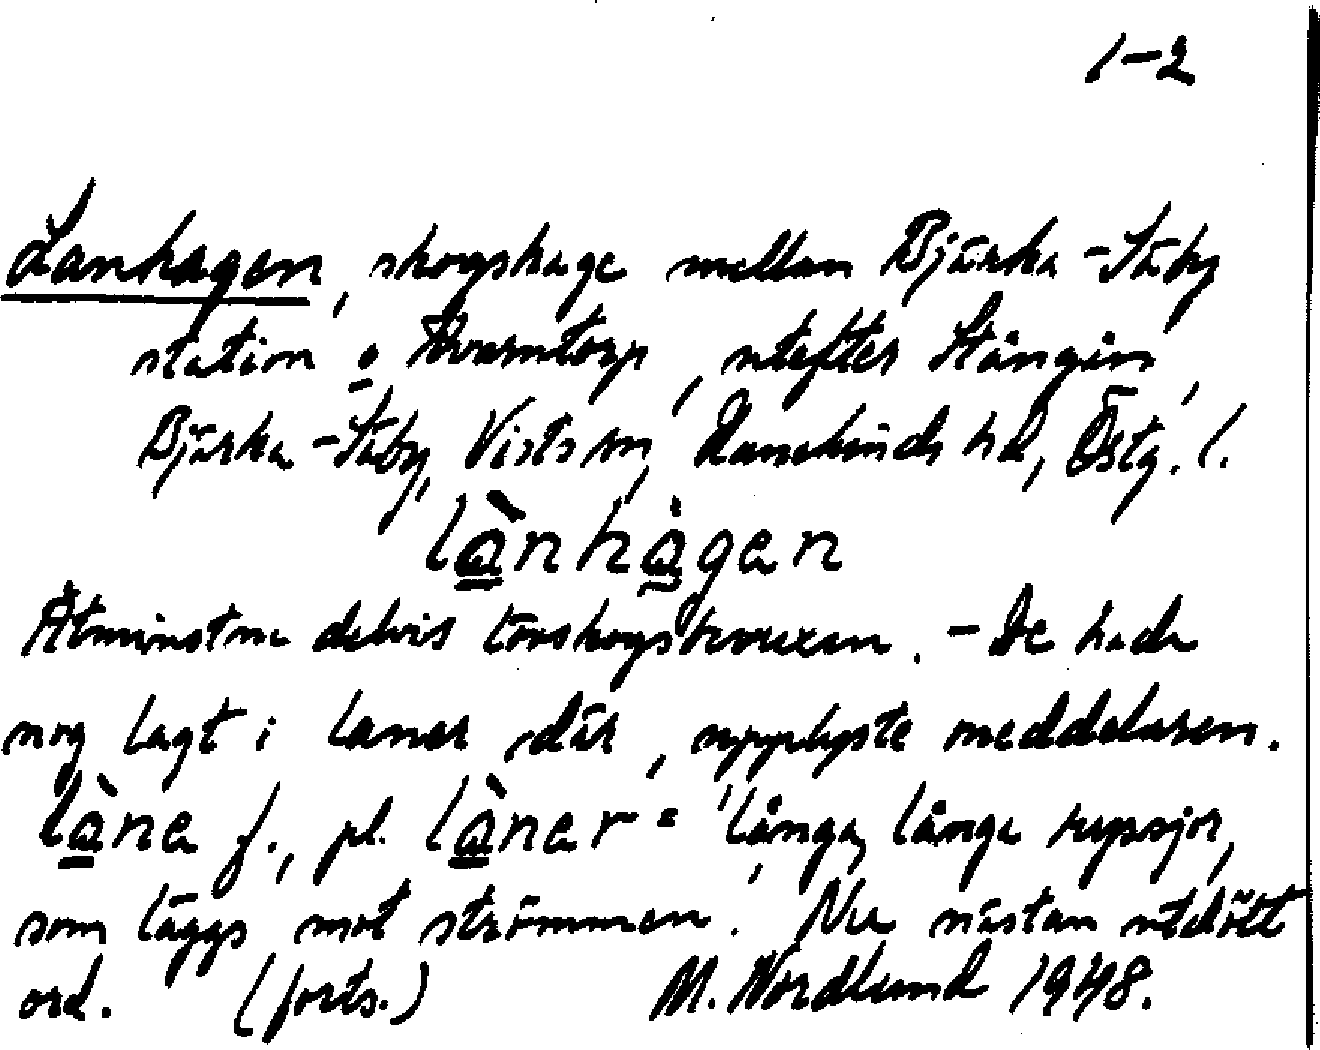 1-2
Lanhagen, skogshage mellan Bjärka-Säby
station o Kvarntorp, utefter Stångån,
Bjärka-Säby, Vists sn, Hanekinds hd, Östg. l.
lànhàgen
Åtminstone delvis törskogsbevuxen. - De hade
nog lagt i laner där, upplyste meddelaren.
làne f., pl. làner = 'långa, långa ryssjor,
som läggs mot strömmen.' Nu nästan utdött
ord. (forts.) M. Nordlund 1948.